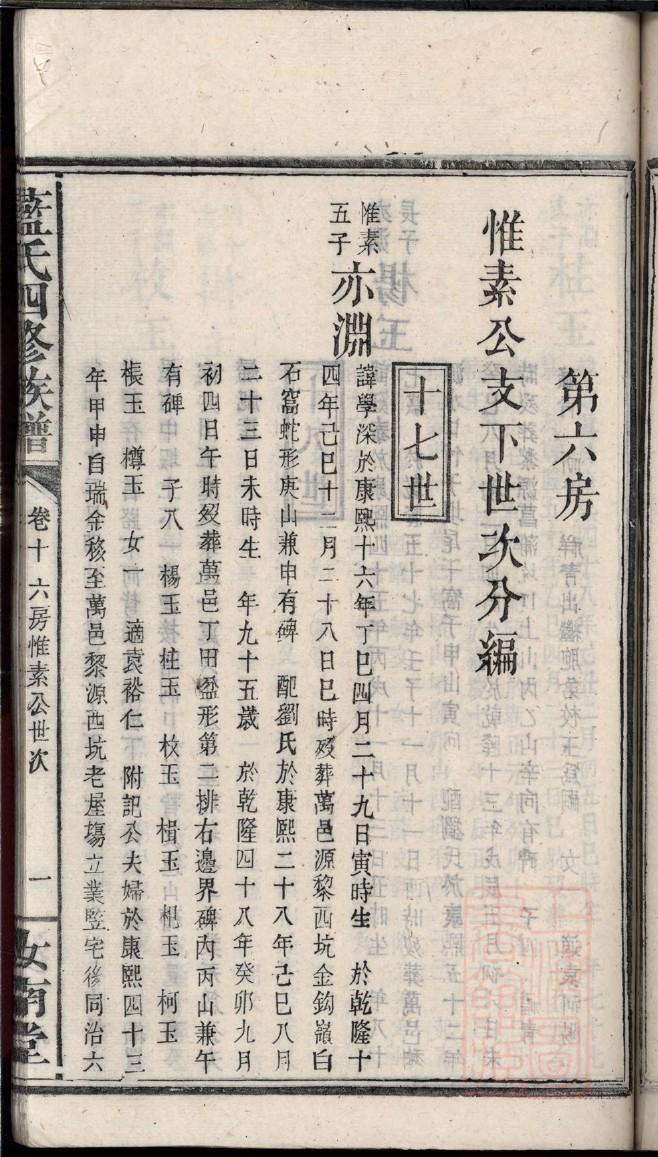 第六房
惟素公支下世次分編
十七世
惟素
五子
亦淵
諱學深於康熙十六年丁巳四月二十九日寅時生 於乾隆十
四年己巳十二月二十八日巳時歿葬萬邑源黎西坑金鈎嶺白
石窩蛇形庚山兼申有碑 配劉氏於康熙二十八年己巳八月
二十三日未時生 年九十五歲 於乾隆四十八年癸卯九月
初四日午時歿葬萬邑丁田盈形第二排右邊界碑內丙山兼午
有碑 子八 楊玉 柱玉 枚玉 楫玉 杞玉 柯玉
棖玉 樽玉 女一 適袁裕仁 附記公夫婦於康熙四十三
年甲申自瑞金移至萬邑黎源西坑老屋塲立業竪宅後同治六
藍氏四修族譜
卷十 六房惟素公世次
一
汝南堂